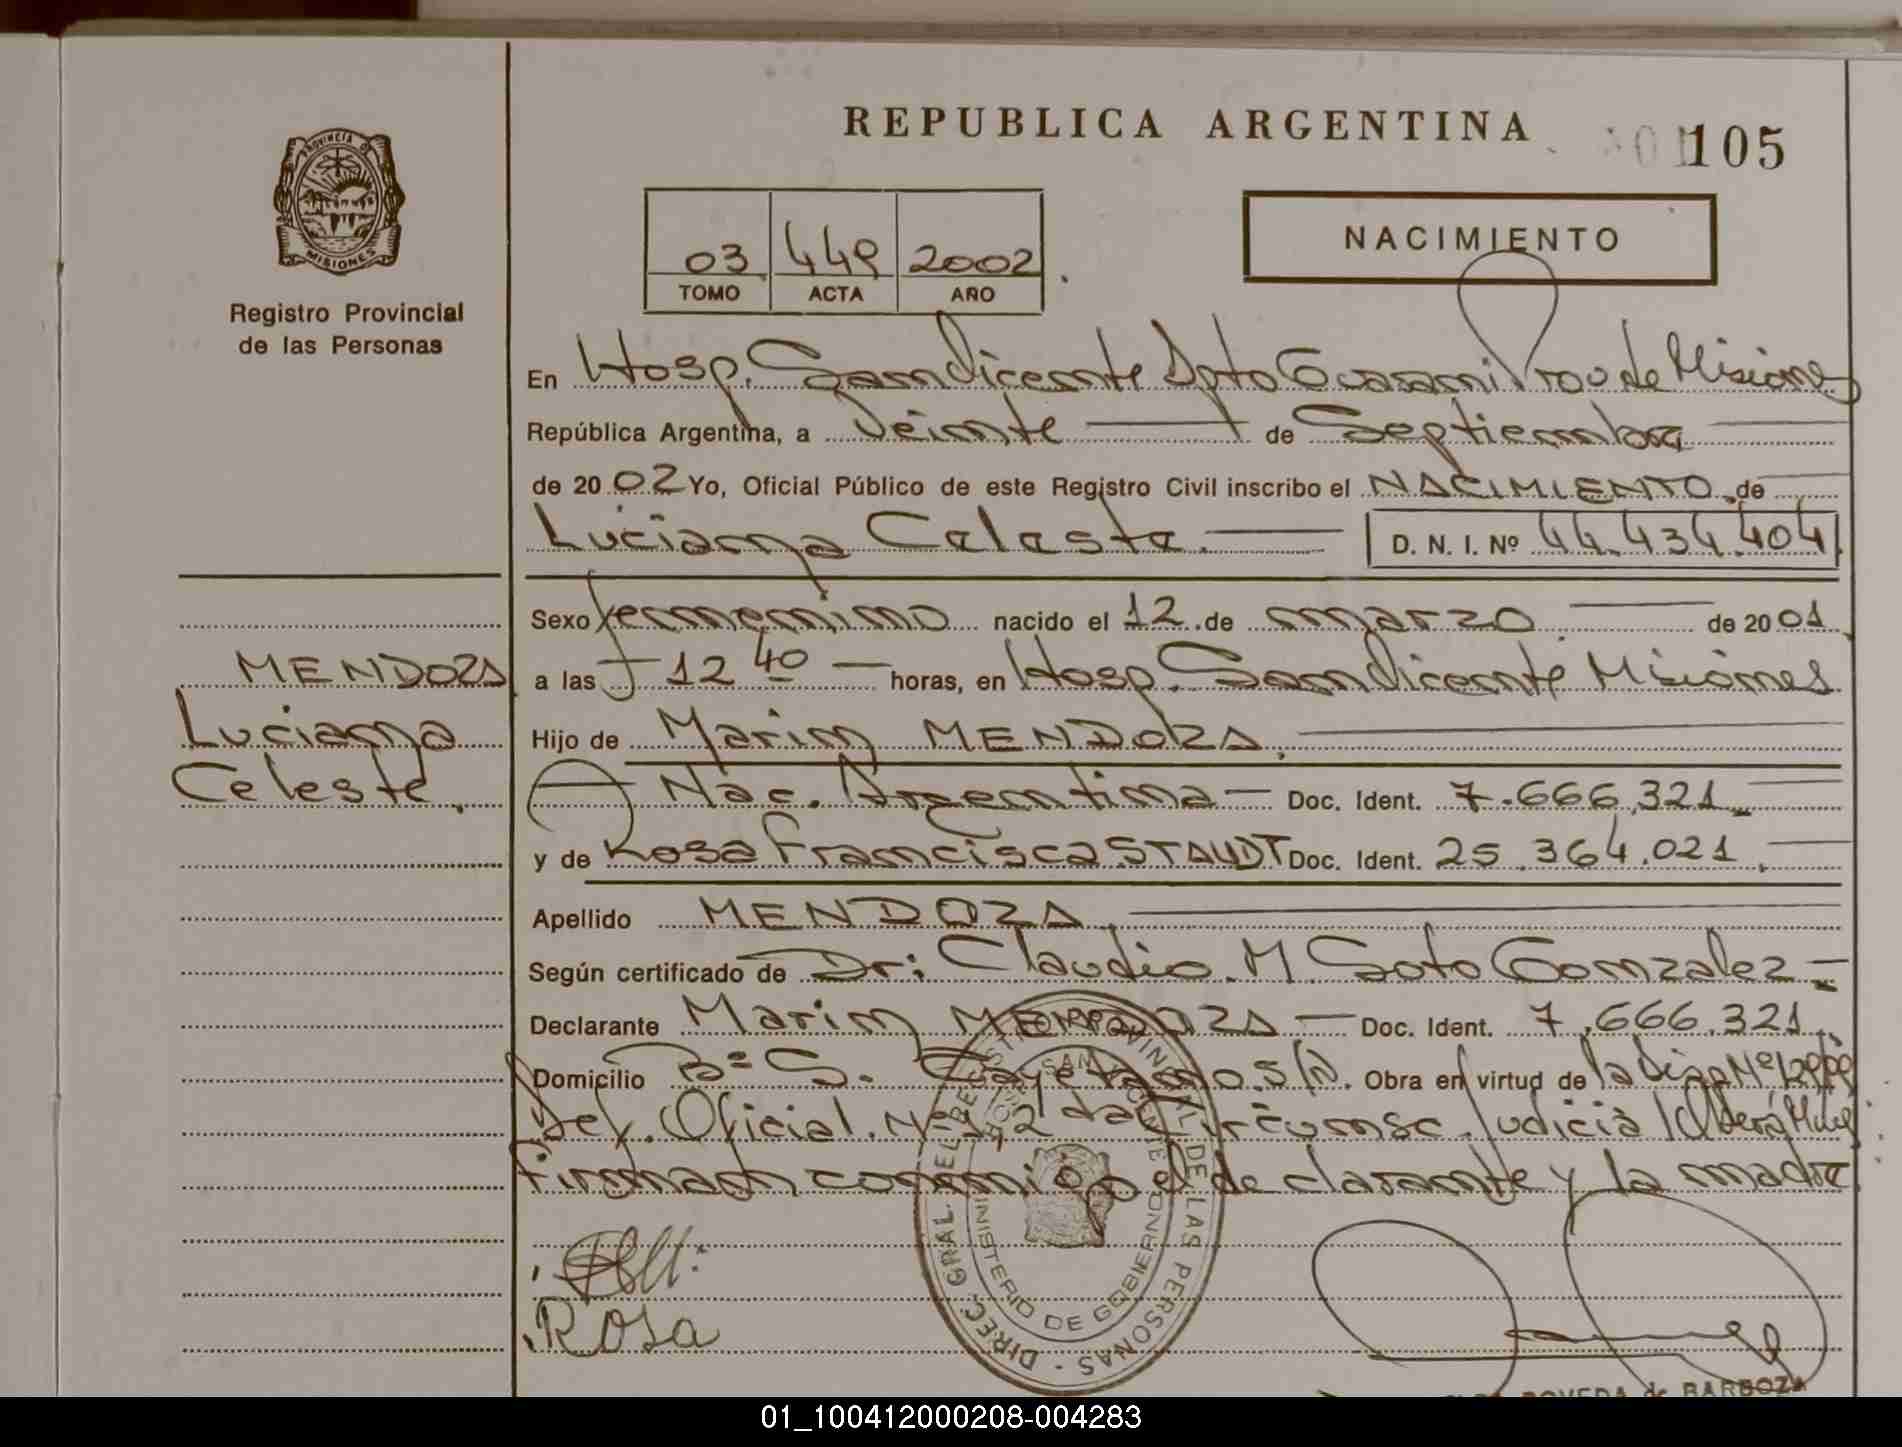 REPUBLICA ARGENTINA
105
PROVINCIA DE
MISIONES
Registro Provincial
de las Personas
03 449 2002
TOMO ACTA AÑO
NACIMIENTO
En Hosp. San Vicente Dpto Guaraní Prov de Misiones
República Argentina, a Veinte de Septiembre
de 2002 Yo, Oficial Público de este Registro Civil inscribo el NACIMIENTO de
Luciana Celeste. D. N. I. Nº 44.434.404
Sexo femenino nacido el 12 de marzo de 2001
a las 12 40 horas, en Hosp. San Vicente Misiones
MENDOZA
Luciana
Celeste.
Hijo de Marin MENDOZA.
Nac. Argentina Doc. Ident. 7.666.321
y de Rosa Francisca STAUDT Doc. Ident. 25.364.021.
Apellido MENDOZA
Según certificado de Dr: Claudio M Soto Gonzalez
Declarante Marin MENDOZA Doc. Ident. 7.666.321
Domicilio Bº S. Cayetano S/N. Obra en virtud de la Disp Nº
Def. Oficial. Nº 2 da Circunsc. Judicial Oberá
Firman conmigo el declarante y la madre
Rosa
DIREC. GRAL. DEL REGISTRO PROVINCIAL DE LAS PERSONAS -
MINISTERIO DE GOBIERNO
SAN VICENTE
POVEDA de BARBOZA
01_100412000208-004283